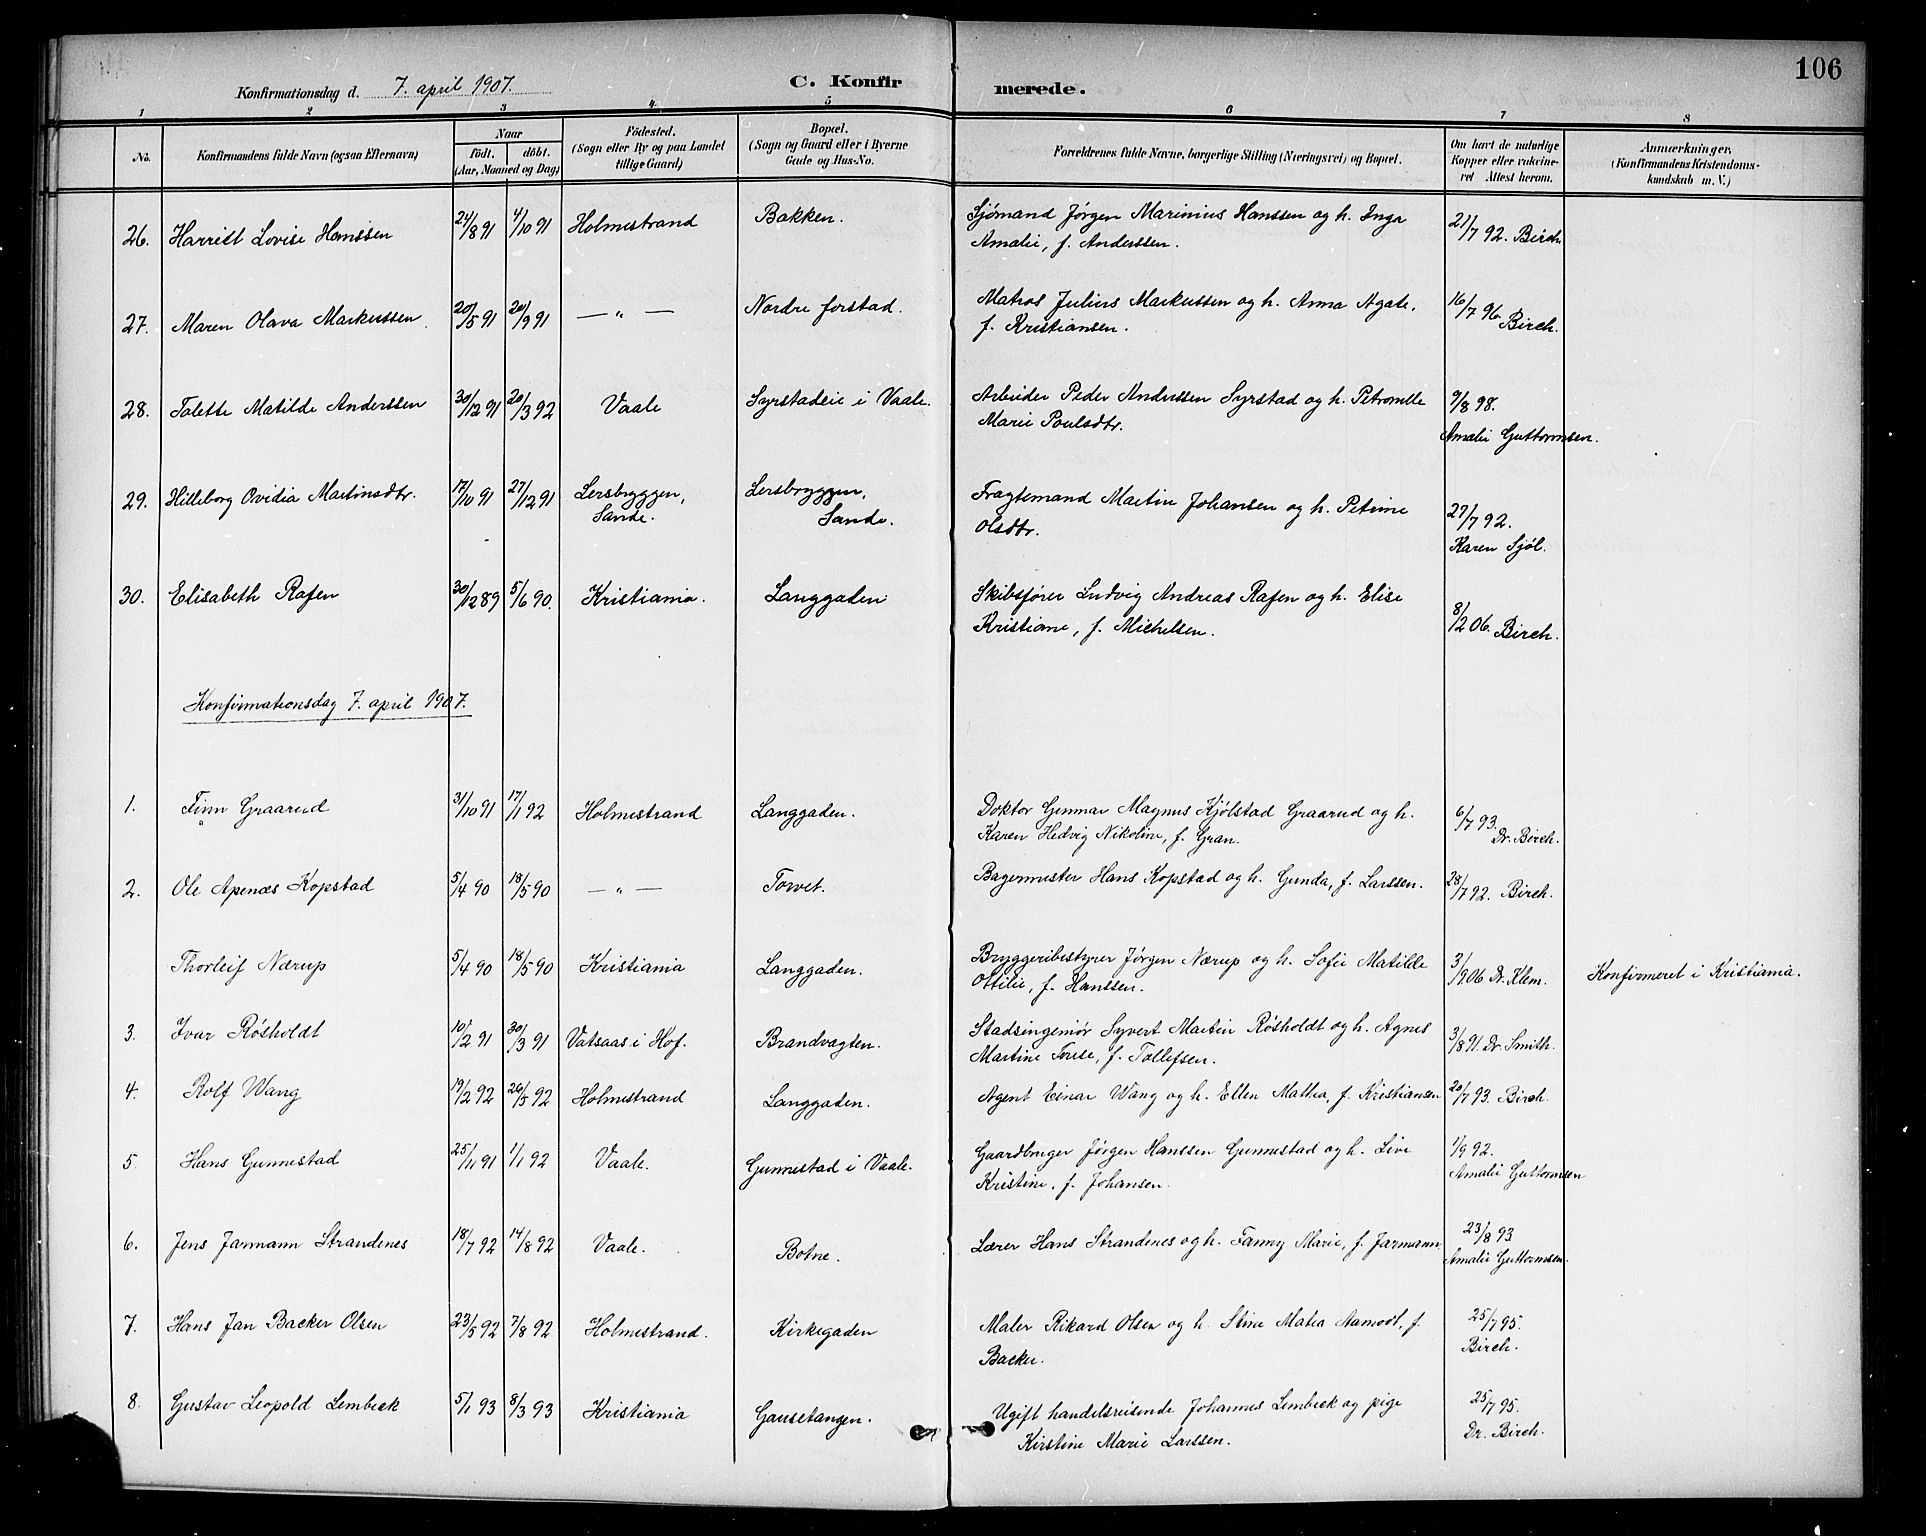 106
Konfirmationsdag d. 7. april 1907.
C. Konfirmerede.
1 2 3 4 5 6 7 8
No.
Konfirmandens fulde Navn (ogsaa Efternavn)
Naar
født. døbt.
(Aar, Maaned og Dag)
Fødested.
(Sogn eller By og paa Landet
tillige Gaard)
Bopæl.
(Sogn og Gaard eller i Byerne
Gade og Hus-No.
Forældrenes fulde Navne, borgerlige Stilling (Næringsvei) og Bopæl.
Om havt de naturlige
Kopper eller vakcine-
ret Attest herom.
Anmærkninger,
(Konfirmandens Kristendoms-
kundskab m. V.)
26. Harriet Lovise Hanssen 24/8 91 4/10 91 Holmestrand Bakken. Sjømand Jørgen Marinius Hanssen og h. Inga
Amalie, f. Anderssen. 21/7 92. Birch
27. Maren Olava Markussen 20/5 91 20/9 91 — " — Nordre forstad. Matros Julius Markussen og h. Anna Agate,
f. Kristiansen. 16/7 96. Birch.
28. Tolette Matilde Anderssen 30/12 91 20/3 92 Vaale Syrstadeie i Vaale. Arbeider Peder Anderssen Syrstad og h. Petronelle
Marie Poulsdtr. 9/8 98.
Amalie Guttormsen.
29. Hilleborg Ovidia Martinsdtr. 17/10 91 27/12 91 Lersbryggen, Lersbryggen, Fragtemand Martin Johansen og h. Petrine
Sande. Sande. Olsdtr. 27/7 92.
Karen Sjøl.
30. Elisabeth Rafen 30/12 89 5/6 90. Kristiania. Langgaden Skibsfører Ludvig Andreas Rafen og h. Elise
Kristiane, f. Michelsen. 8/2 06. Birch.
Konfirmationsdag 7. april 1907.
1. Finn Graarud 31/10 91 17/1 92 Holmestrand Langgaden. Doktor Gunnar Magnus Kjølstad Graarud og h.
Karen Hedvig Nikoline, f. Gran. 6/7 93.
Dr. Birch.
2. Ole Apenæs Kopstad 5/4 90 18/5 90 — " — Torvet. Bagermester Hans Kopstad og h. Gunda, f. Larssen. 28/7 92. Birch.
Thorleif Nærup 5/4 90 18/5 90 Kristiania Langgaden. Bryggeribestyrer Jørgen Nærup og h. Sofie Matilde
Ottilie, f. Hanssen. 3/9 06 Dr. Klem. Konfirmeret i Kristiania.
3. Ivar Røsholdt 10/2 91 30/3 91 Vatsaas i Hof. Brandvagten. Stadsingeniør Syvert Martin Røsholdt og h. Agnes
Martine Touse, f. Tollefsen. 3/8 91. Dr. Smith.
4. Rolf Wang 19/2 92 26/5 92 Holmestrand Langgaden. Agent Einar Wang og h. Ellen Mathea, f. Kristiansen 20/7 93. Birch.
5. Hans Gunnestad 25/11 91 1/1 92 Vaale. Gunnestad i Vaale. Gaardbruger Jørgen Hanssen Gunnestad og h. Live
Kristine, f. Johansen. 1/9 92.
Amalie Guttormsen
6. Jens Jarmann Strandenes 18/7 92 14/8 92 Vaale. Botne. Lærer Hans Strandenes og h. Fanny Marie, f. Jarmann 23/8 93
Amalie Guttormsen.
7. Hans Jan Backer Olsen 23/5 92 7/8 92 Holmestrand. Kirkegaden Maler Rikard Olsen og h. Stine Matea Aamodt, f.
Backer. 25/7 95.
Birch.
8. Gustav Leopold Lembeck 5/1 93 8/3 93 Kristiania Gausetangen. Ugift handelsreisende Johannes Lembeck og pige
Kirstine Marie Larssen. 25/7 95.
Dr. Birch.